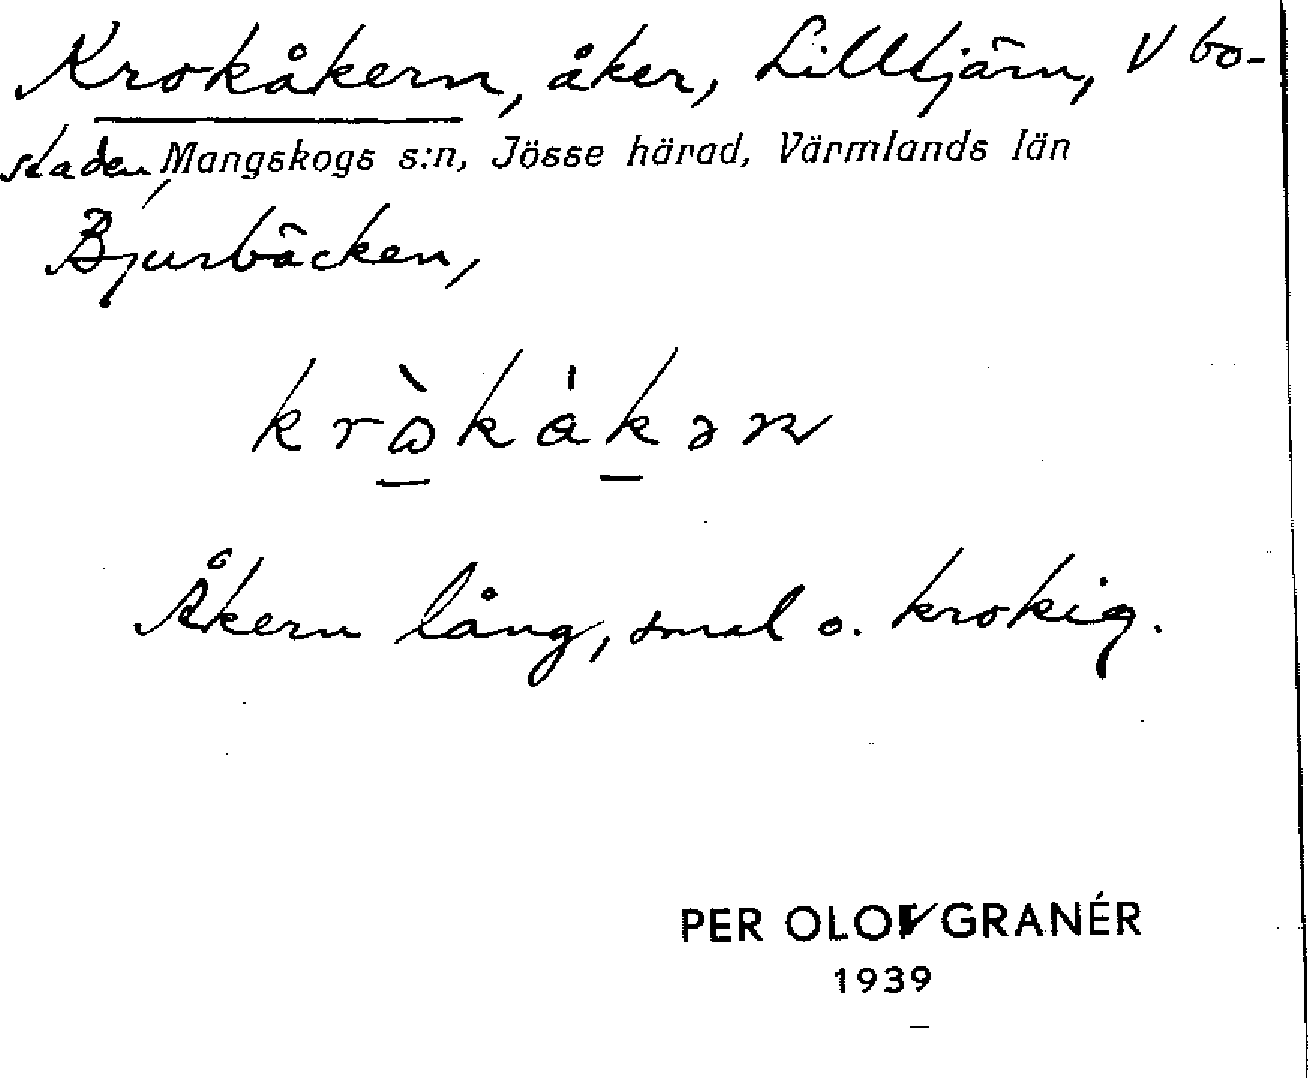 Krokåkern, åker, Lilltjärn, V bo-
staden, Mangskogs s:n, Jösse härad, Värmlands län
Bjurbäcken,
krὼkákən
Åkern lång, smal o. krokig.
PER OLOV GRANÉR
1939